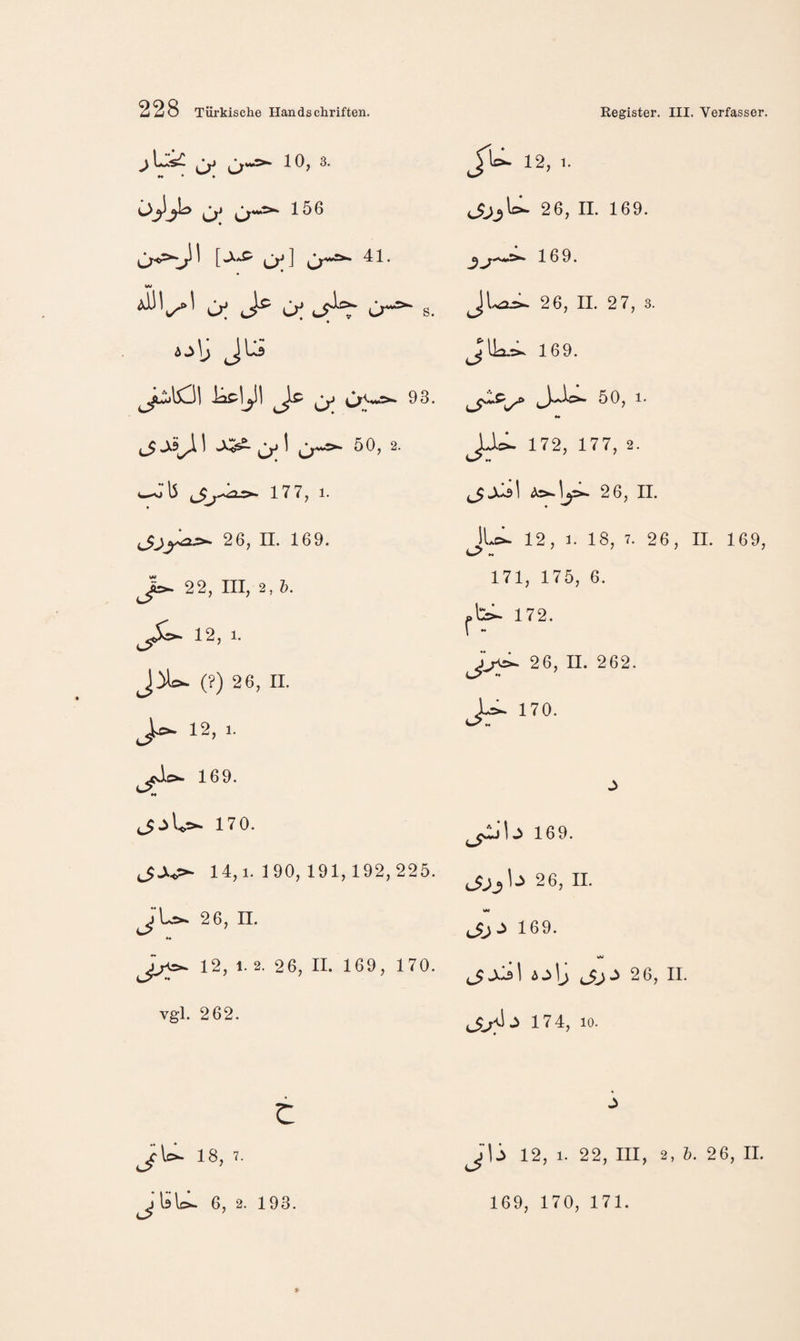 228 Türkische Handschriften.
Register. III. Verfasser.
حسن بن بختيار 10, 3.
حسن بن طولون 156
حسن [بن عبد] الرحمن 41.
حسن چلبى بن على بن امر الله s.
قنالى زاده
حسين بن على الواعظ الكاشفى 93.
حسن ابن محمد الرقدى 50, 2.
حصرى تائب 177, 1.
حضورى 26, II. 169.
حقى 22, III, 2, b.
حكمى 12, 1.
حلالى (?) 26, II.
حلمى 12, 1.
حليمى 169.
حمادى 170.
حمدى 14, 1. 190, 191, 192, 225.
حياتى 26, II.
حيرتى 12, 1. 2. 26, II. 169, 170.
vgl. 262.
خ
خاتمى 18, 7.
خاقانى 6, 2. 193.
خاكى 12, 1.
خاورى 26, II. 169.
خسرو 169.
خصالى 26, II. 27, 3.
خطائى 169.
خليل مرعشى 50, 1.
خليلى 172, 177, 2.
خواجه افندى 26, II.
خيالى 12, 1. 18, 7. 26, II. 169,
171, 175, 6.
خيام 172.
خيرتى 26, II. 262.
خيلى 170.
د
دانشى 169.
داورى 26, II.
درّى 169.
درّى زاده افندى 26, II.
دلبرى 174, 10.
ذ
ذاتى 12, 1. 22, III, 2, b. 26, II.
169, 170, 171.